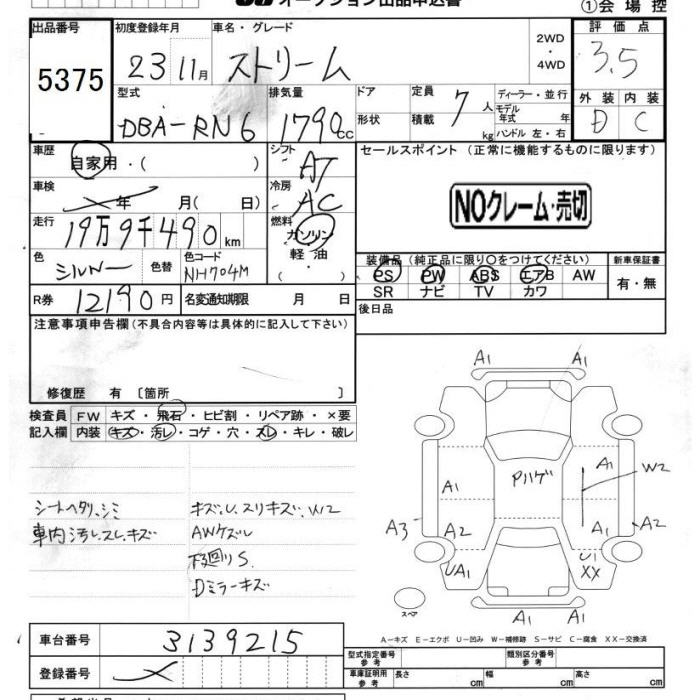 オークション出品申込書 ①会場控
出品番号 初度登録年月 車名・グレード 2WD・4WD 評価点
5375 23 11月 ストリーム 3.5
型式 排気量 ドア形状 定員積載 7人 kg ディーラー・並行 モデル年式 年 ハンドル 左・右 外装 内装
DBA-RN6 1790cc D C
車歴 自家用・( ) シフト AT セールスポイント (正常に機能するものに限ります)
車検 年 月( 日) 冷房 AC NOクレーム・売切
走行 19万9千490km 燃料 ガソリン 軽油・( )
色 シルバー 色替 色コード NH704M 装備品(純正品に限り○をつけてください) 新車保証書
PS PW ABS エアB AW 有・無
SR ナビ TV カワ
R券 12190円 名変通知期限 月 日 後日品
注意事項申告欄(不具合内容等は具体的に記入して下さい)
修復歴 有 〔箇所 〕
検査員記入欄 FW キズ・飛石・ヒビ割・リペア跡・×要
内装 キズ・汚レ・コゲ・穴・スレ・キレ・破レ
シートヘタリ、シミ
車内汚レ、スレ、キズ
キズ、U、スリキズ、W2
AWケズレ
下廻りS
Dミラーキズ
A1 A1
A1 PハゲA1 W2
A3 A2 A1 A2
UA1 U1 XX
スペア A1 A1
A-キズ E-エクボ U-凹み W-補修跡 S-サビ C-腐食 XX-交換済
車台番号 3139215
登録番号
型式指定番号 参考 類別区分番号 参考
車庫証明用 参考 長さ cm 幅 cm 高さ cm